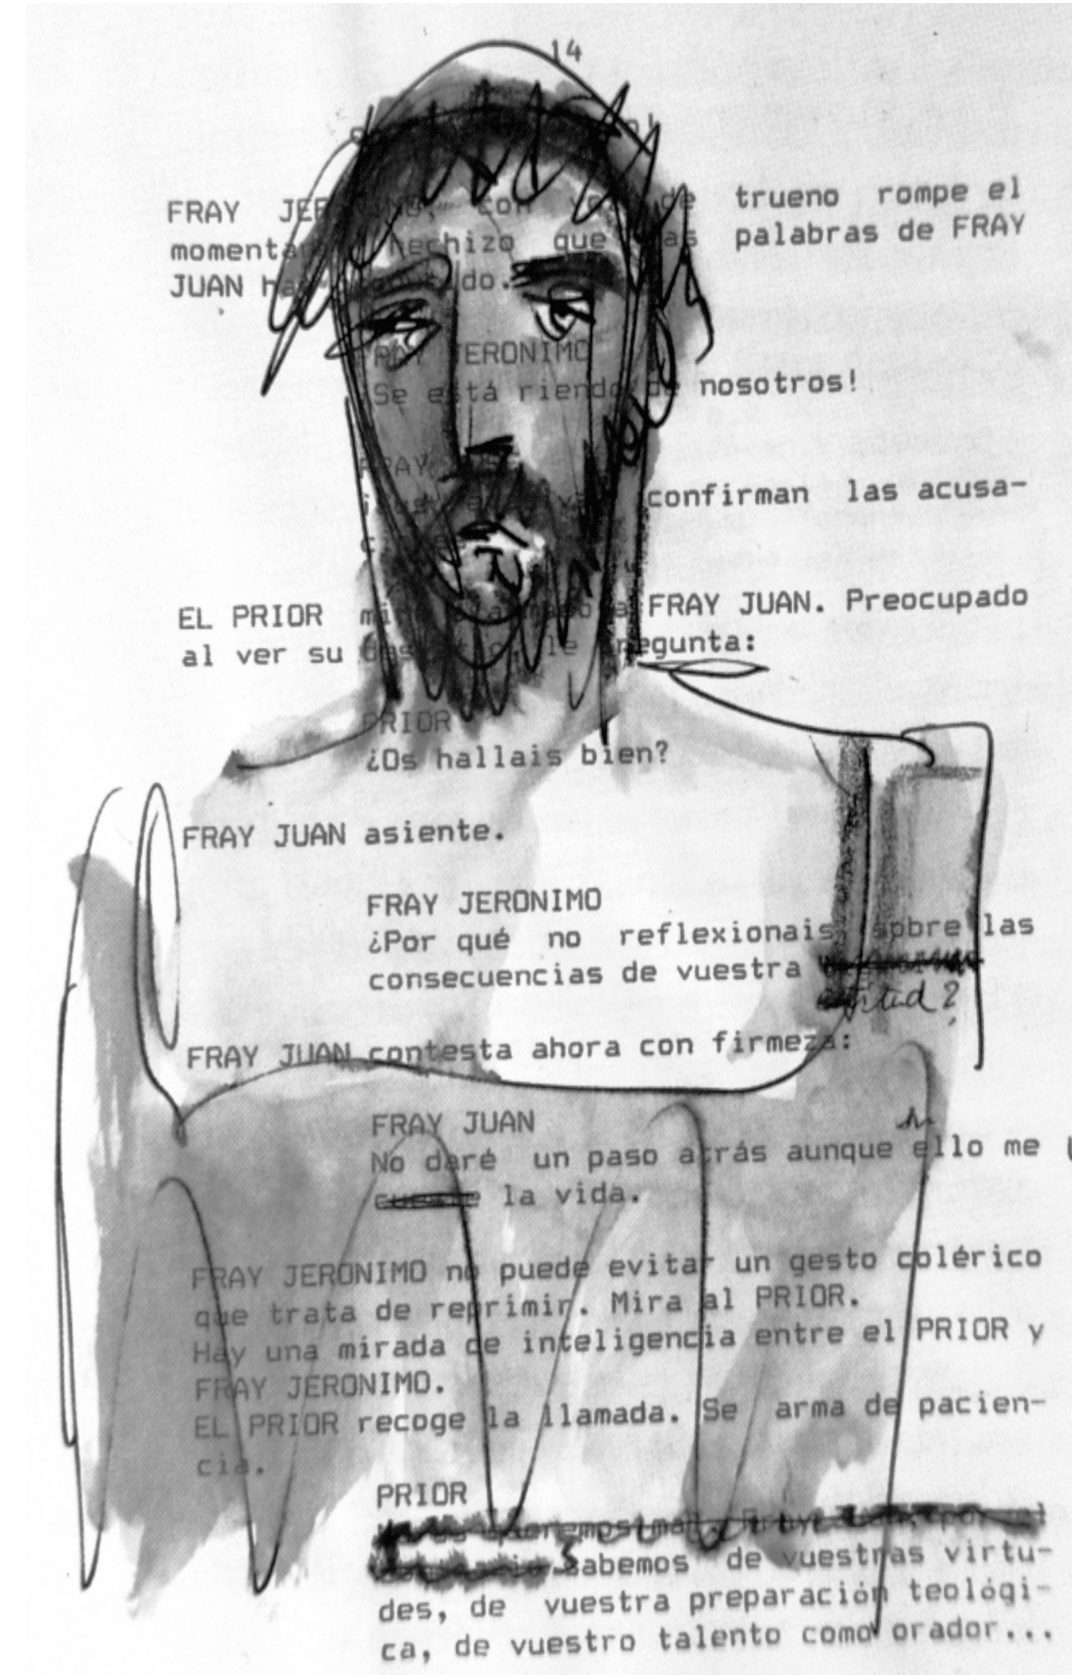 14
FRAY con de trueno rompe el
hechizo que palabras de FRAY
JUAN
FRAY JERONIMO
¡Se está riendo de nosotros!
FRAY
confirman las acusa-
EL PRIOR a FRAY JUAN. Preocupado
al ver su le pregunta:
PRIOR
¿Os hallais bien?
FRAY JUAN asiente.
FRAY JERONIMO
¿Por qué no reflexionais sobre las
consecuencias de vuestra
actitud?
FRAY JUAN contesta ahora con firmeza:
FRAY JUAN
No daré un paso atrás aunque ello me
cueste la vida.
FRAY JERONIMO no puede evitar un gesto colérico
que trata de reprimir. Mira al PRIOR.
Hay una mirada de inteligencia entre el PRIOR y
FRAY JERONIMO.
EL PRIOR recoge la llamada. Se arma de pacien-
cia.
PRIOR
Sabemos de vuestras virtu-
des, de vuestra preparación teológi-
ca, de vuestro talento como orador...